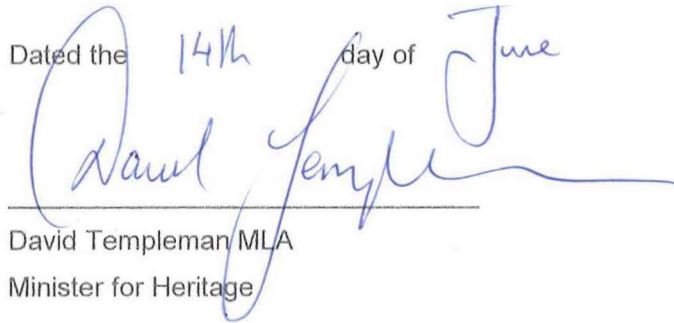 Dated the 14th day of June
David Templeman
David Templeman MLA
Minister for Heritage